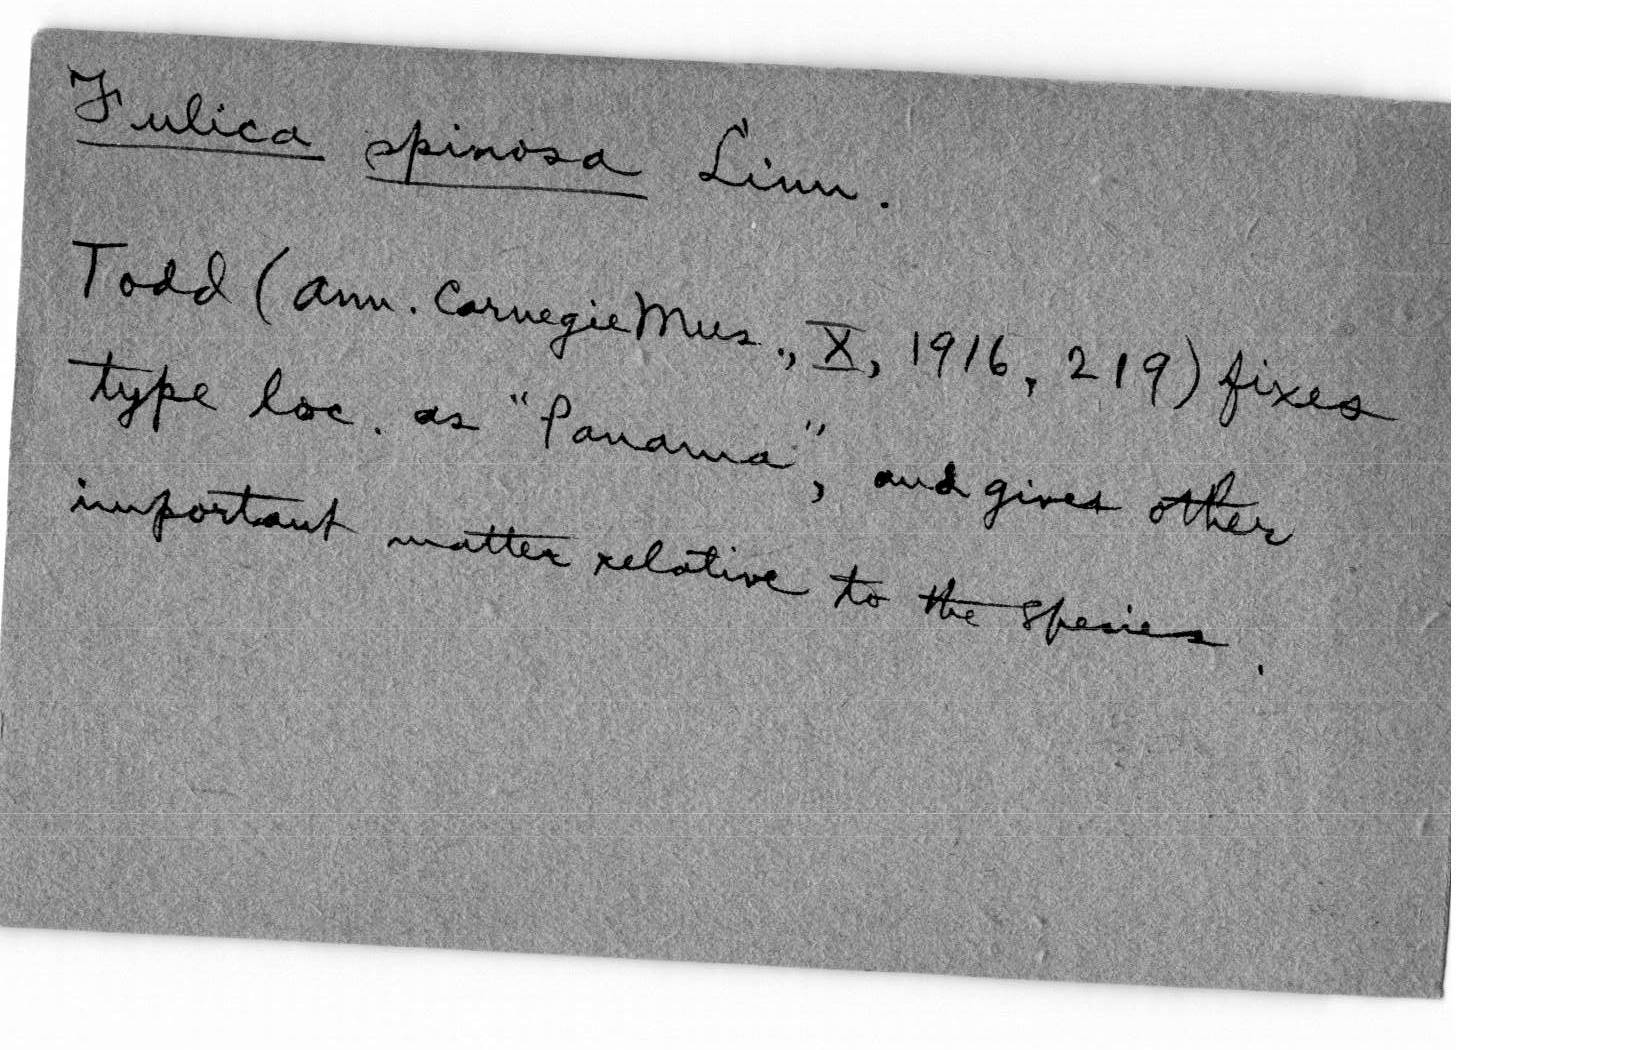 Fulica spinosa Linn.
Todd (Ann. Carnegie Mus., X, 1916, 219) fixes
type loc. as "Panama", and gives other
important matter relative to the species.